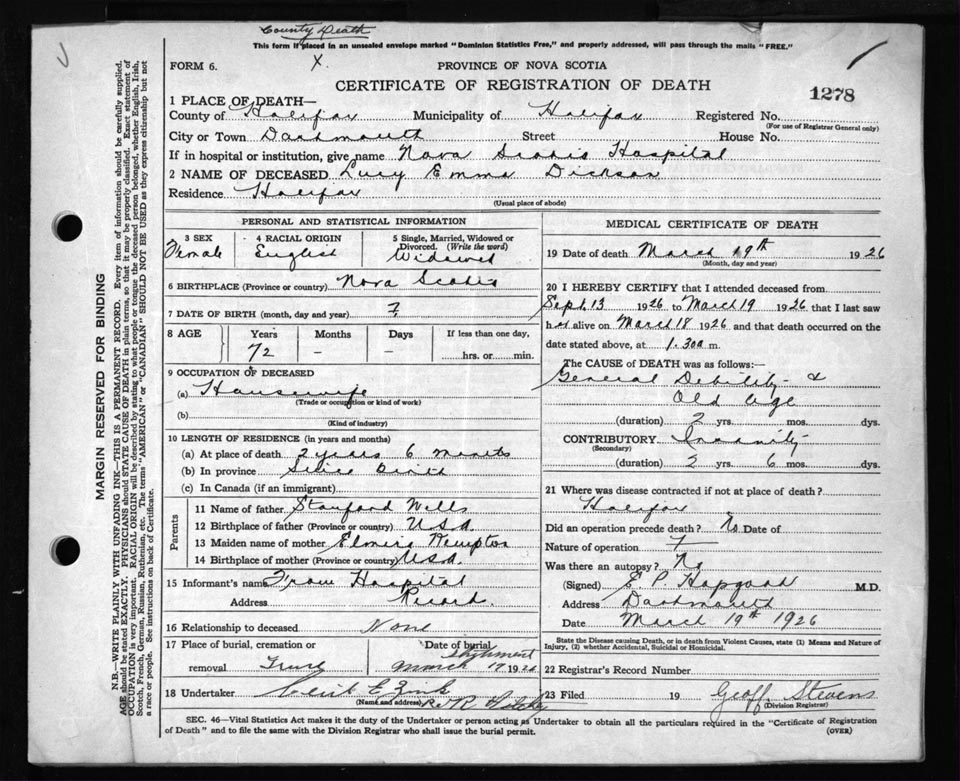 County Death
This form if placed in an unsealed envelope marked "Dominion Statistics Free," and properly addressed, will pass through the mails "FREE."
FORM 6. X. PROVINCE OF NOVA SCOTIA
CERTIFICATE OF REGISTRATION OF DEATH
1278
1 PLACE OF DEATH—
County of Halifax Municipality of Halifax Registered No.
(For use of Registrar General only)
City or Town Dartmouth Street House No.
If in hospital or institution, give name Nova Scotia Hospital
2 NAME OF DECEASED Lucy Emma Dickson
Residence Halifax
(Usual place of abode)
PERSONAL AND STATISTICAL INFORMATION
3 SEX 4 RACIAL ORIGIN 5 Single, Married, Widowed or
Divorced. (Write the word)
Female English Widowed
6 BIRTHPLACE (Province or country) Nova Scotia
7 DATE OF BIRTH (month, day and year) ?
8 AGE Years Months Days If less than one day,
72 – – hrs. or min.
9 OCCUPATION OF DECEASED
(a) Housewife
(Trade or occupation or kind of work)
(b)
(Kind of industry)
10 LENGTH OF RESIDENCE (in years and months)
(a) At place of death 2 years 6 months
(b) In province Since Birth
(c) In Canada (if an immigrant)
Parents
11 Name of father Wells
12 Birthplace of father (Province or country) USA
13 Maiden name of mother Kempton
14 Birthplace of mother (Province or country) USA
15 Informant's name From Hospital
Address Record.
16 Relationship to deceased None
17 Place of burial, cremation or Date of burial
removal Truro March 19, 1926
18 Undertaker
(Name and address)
MEDICAL CERTIFICATE OF DEATH
19 Date of death March 19th 1926
(Month, day and year)
20 I HEREBY CERTIFY that I attended deceased from
Sept. 13 1926 to March 19 1926 that I last saw
her alive on March 18 1926 and that death occurred on the
date stated above, at 1.30 a m.
The CAUSE of DEATH was as follows:
General Debility &
Old Age
(duration) 2 yrs. mos. dys.
CONTRIBUTORY Insanity
(Secondary)
(duration) 2 yrs. 6 mos. dys.
21 Where was disease contracted if not at place of death?
Halifax
Did an operation precede death? No Date of
Nature of operation
Was there an autopsy? No
(Signed) E. P. Hopgood M.D.
Address Dartmouth
Date March 19th 1926
State the Disease causing Death, or in death from Violent Causes, state (1) Means and Nature of
Injury, (2) whether Accidental, Suicidal or Homicidal.
22 Registrar's Record Number
23 Filed 19 Geoff Stevens
(Division Registrar)
SEC. 46—Vital Statistics Act makes it the duty of the Undertaker or person acting as Undertaker to obtain all the particulars required in the "Certificate of Registration
of Death" and to file the same with the Division Registrar who shall issue the burial permit. (OVER)
MARGIN RESERVED FOR BINDING
N.B.—WRITE PLAINLY WITH UNFADING INK—THIS IS A PERMANENT RECORD. Every item of information should be carefully supplied.
AGE should be stated EXACTLY. PHYSICIANS should STATE CAUSE OF DEATH in plain terms, so that it may be properly classified. Exact statement of
OCCUPATION is very important. RACIAL ORIGIN will be described by stating to what people or tongue the deceased person belonged, whether English, Irish,
Scotch, French, German, Russian, Ruthenian, etc. The terms "AMERICAN" or "CANADIAN" SHOULD NOT BE USED as they express citizenship but not
a race or people. See instructions on back of Certificate.